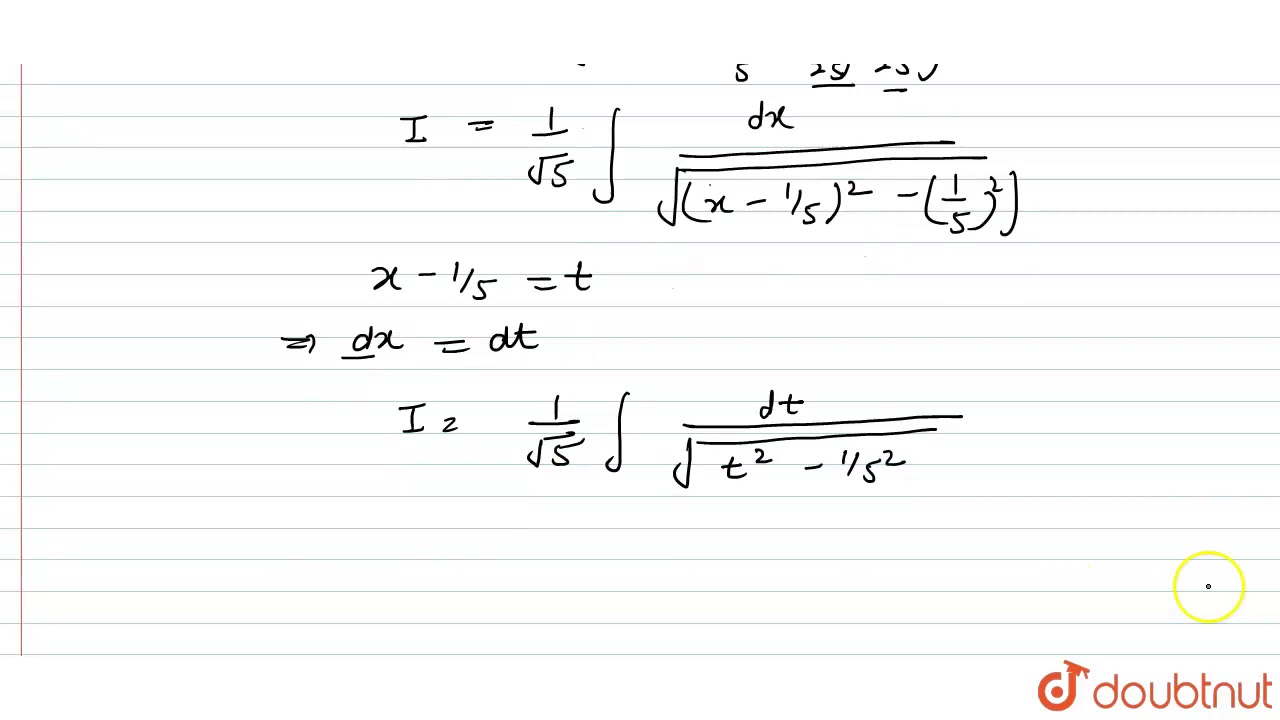 5 25 25
I = 1/√5 ∫ dx / √(x - 1/5)² - (1/5)²]
x - 1/5 = t
⇒ dx = dt
I = 1/√5 ∫ dt / √t² - 1/5²
doubtnut